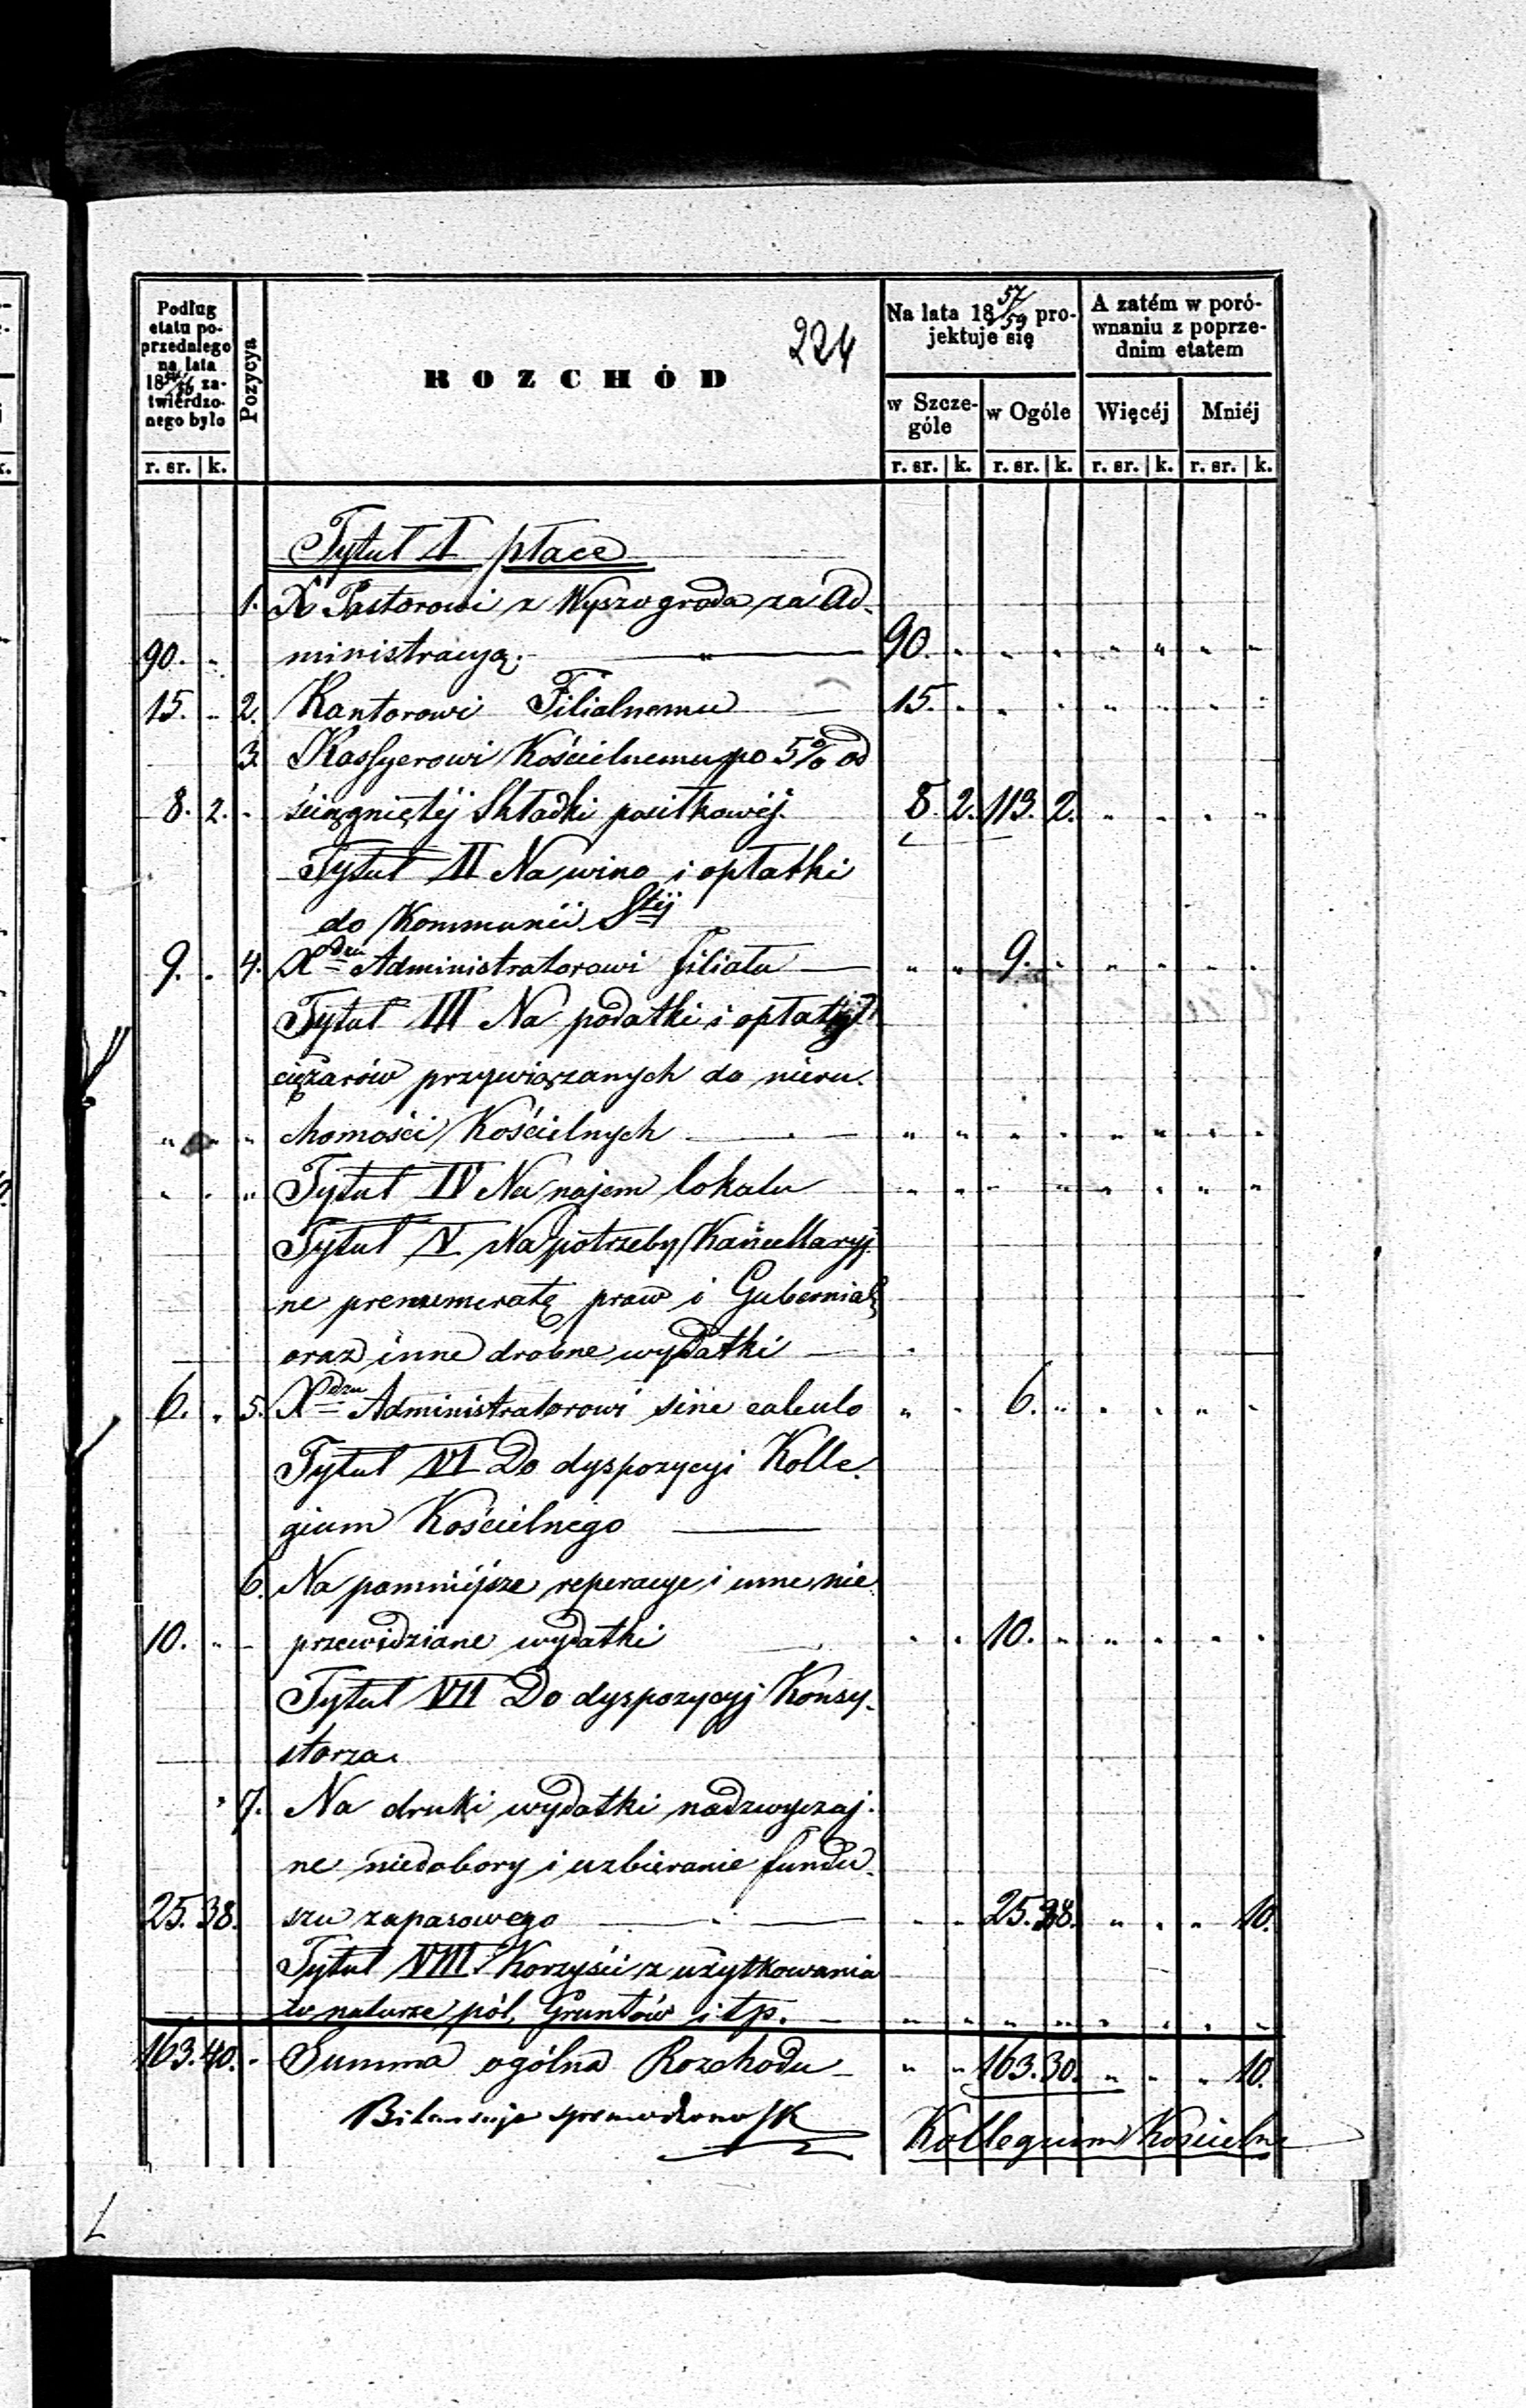 224
Podług etatu poprzedniego na lata 1854/56 zatwierdzonego było
Pozycya
ROZCHÓD
Na lata 18 57/59 projektuje się
A zatém w porównaniu z poprzednim etatem
w Szczególe
w Ogóle
Więcéj
Mniéj
r. sr. k. r. sr. k. r. sr. k. r. sr. k. r. sr. k.
Tytuł I płace
1. X Pastorowi z Wyszogroda za Ad-
90. " ministracyą. " 90. " " " " " " "
15. " 2. Kantorowi Filialnemu 15. " " " " " " "
3. Kassyerowi Kościelnemu po 5% od
8. 2. " ściągniętéj Składki posiłkowéj. 8. 2. 113. 2. " " " "
Tytuł II Na wino i opłatki
do Kommunii Stéj
9. " 4. Xdzu Administratorowi filiału " " 9. " " " " "
Tytuł III Na podatki i opłaty
ciężarów przywiązanych do nieru-
" " " chomości Kościelnych " " " " " " " "
" " " Tytuł IV Na najem lokalu " " " " " " " "
Tytuł V Na potrzeby Kancellaryj-
ne prenumeratę praw i Gubernial
oraz inne drobne wydatki "
6. " 5. Xdzu Administratorowi sine calculo " " 6. " " " " "
Tytuł VI Do dyspozycyi Kolle-
gium Kościelnego
6. Na pomniejsze reperacye i inne nie
10. " przewidziane wydatki " " 10. " " " " "
Tytuł VII Do dyspozycyj Konsy-
storza.
" 7. Na druki wydatki nadzwyczaj-
ne niedobory i uzbieranie fundu-
25. 38. szu zapasowego " " 25. 28. " " " 10.
Tytuł VIII Korzyści z użytkowania
w naturze pól, Gruntów i tp. " " " " " " " "
163. 40. " Summa ogólna Rozchodu " " 163. 30. " " " 10.
Kollegium Kościelne